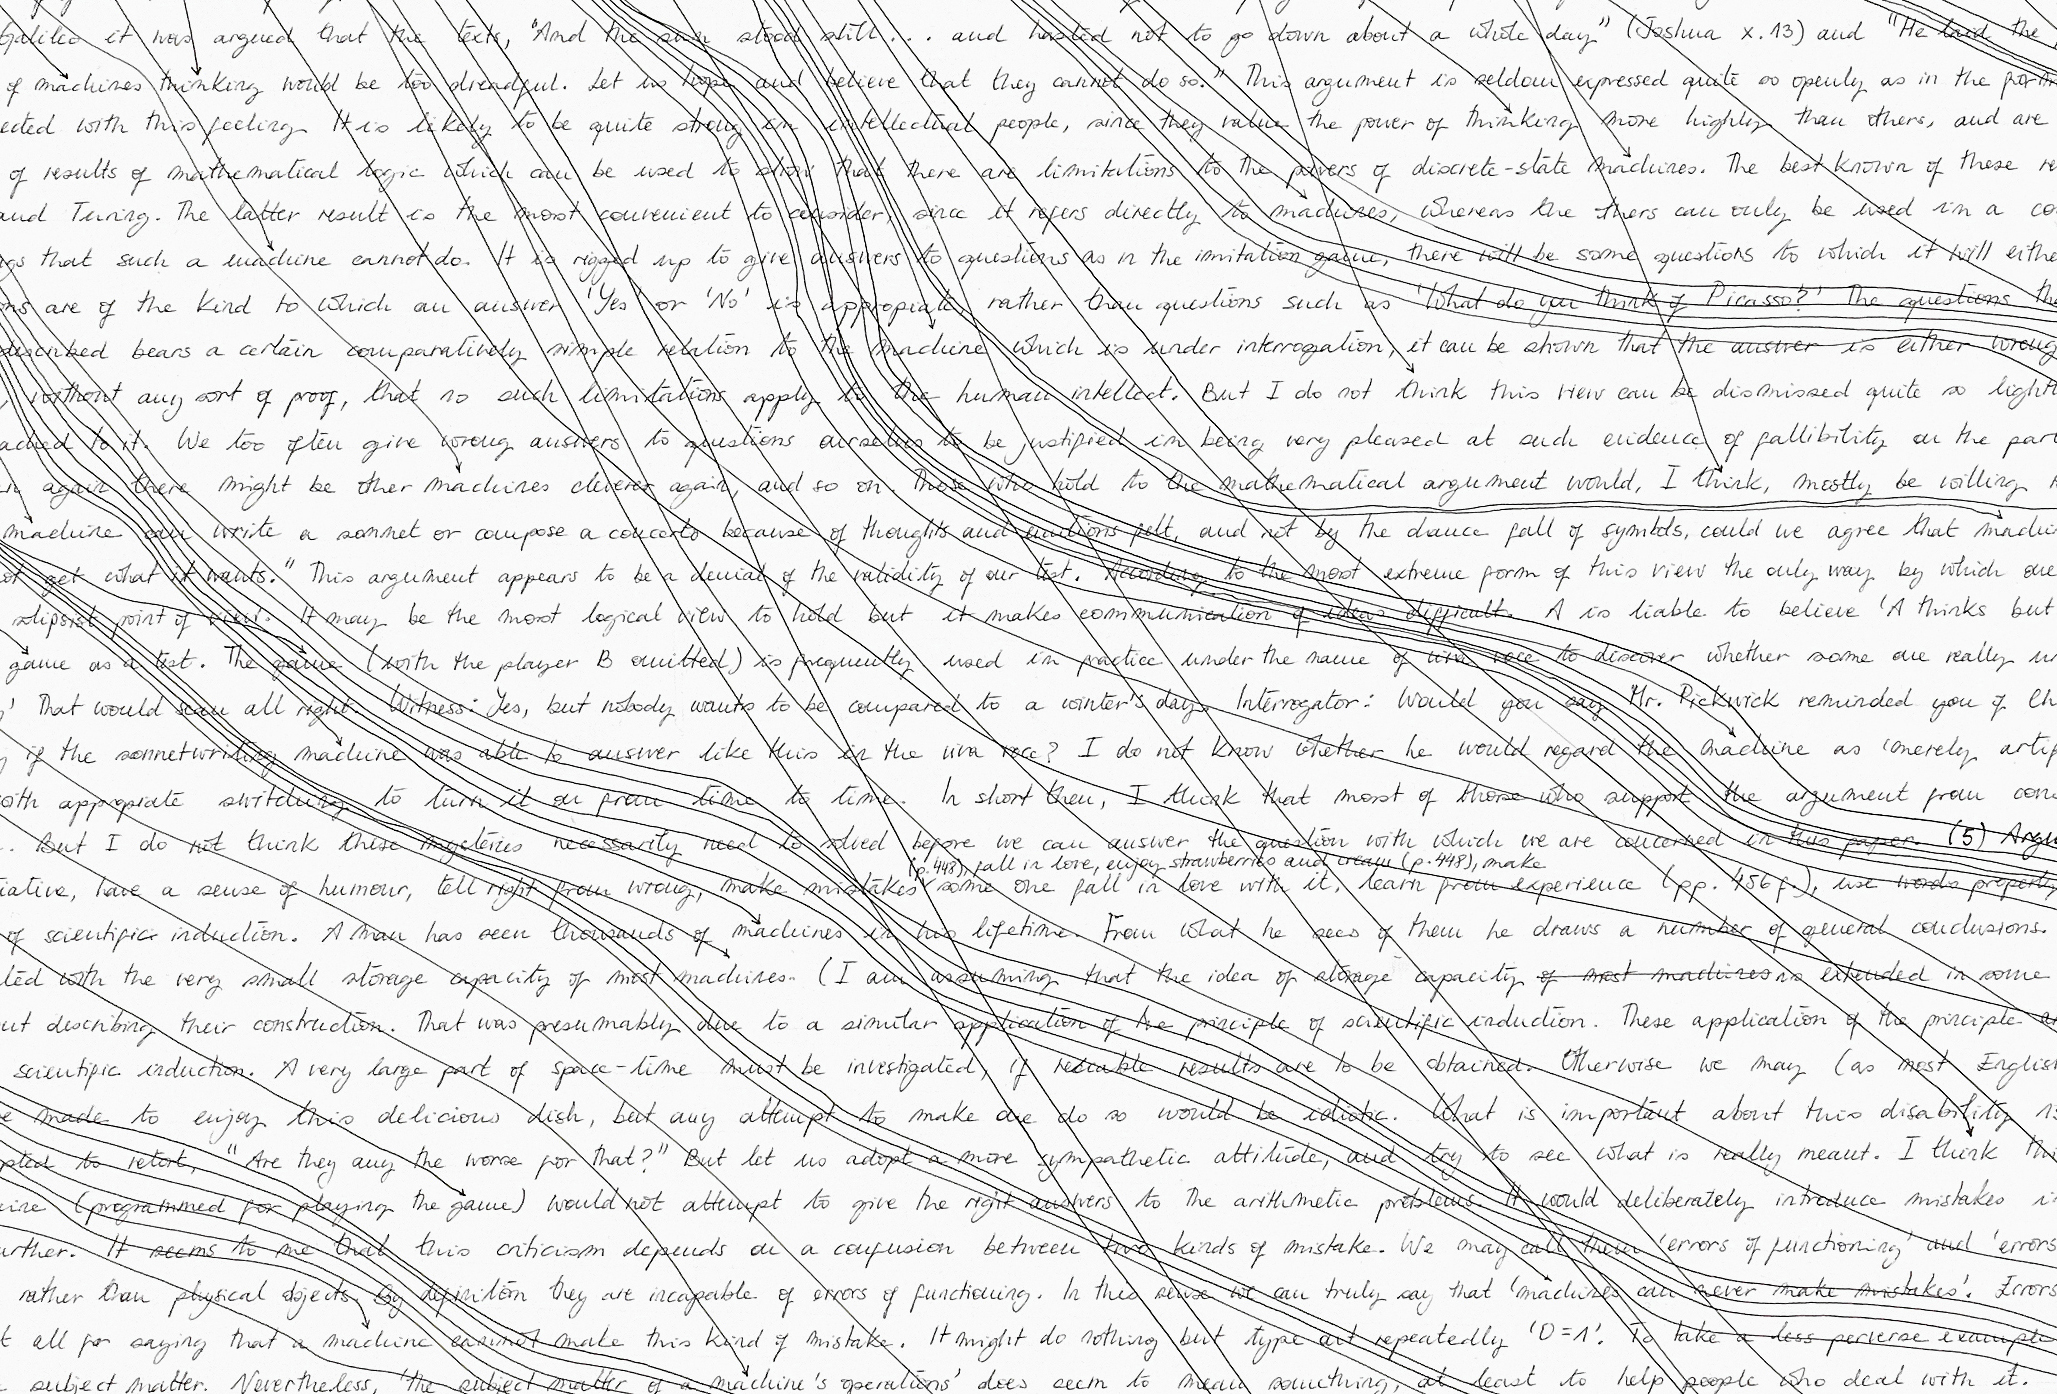 Galileo it was argued that the texts, "And the sun stood still... and hasted not to go down about a whole day" (Joshua x.13) and "He laid the
of machines thinking would be too dreadful. Let us hope and believe that they cannot do so." This argument is seldom expressed quite so openly as in the form
ected with this feeling. It is likely to be quite strong in intellectual people, since they value the power of thinking more highly than others, and are
of results of mathematical logic which can be used to show that there are limitations to the powers of discrete-state machines. The best known of these re
and Turing. The latter result is the most convenient to consider, since it refers directly to machines, whereas the others can only be used in a co
gs that such a machine cannot do. It is rigged up to give answers to questions as in the imitation game, there will be some questions to which it will eithe
ns are of the kind to which an answer 'Yes' or 'No' is appropiate, rather than questions such as 'What do you think of Picasso?' The questions the
described bears a certain comparatively simple relation to the machine which is under interrogation, it can be shown that the answer is either wrong
, without any sort of proof, that no such limitations apply to the human intellect. But I do not think this view can be dismissed quite so light
ached to it. We too often give wrong answers to questions ourselves to be justified in being very pleased at such evidence of fallibility on the par
in again there might be other machines cleverer again, and so on. Those who hold to the mathematical argument would, I think, mostly be willing
machine can write a sonnet or compose a concerto because of thoughts and emotions felt, and not by the chance fall of symbols, could we agree that machin
ot get what it wants." This argument appears to be a denial of the validity of our test. According to the most extreme form of this view the only way by which one
solipsist point of view. It may be the most logical view to hold but it makes communication of ideas difficult. A is liable to believe 'A thinks but
game as a test. The game (with the player B omitted) is frequently used in practice under the name of viva voce to discover whether some one really un
y' That would scan all right. Witness: Yes, but nobody wants to be compared to a winter's day. Interrogator: Would you say Mr. Pickwick reminded you of Ch
y if the sonnetwriting machine was able to answer like this in the viva voce? I do not know whether he would regard the machine as 'merely artif
with appropiate switching to turn it on from time to time. In short then, I think that most of those who support the argument from con
. But I do not think these mysteries necessarily need to solved before we can answer the question with which we are concerned in this paper. (5) Argu
(p. 448), fall in love, enjoy strawberries and cream (p. 448), make
iative, have a sense of humour, tell right from wrong, make mistakes some one fall in love with it, learn from experience (pp. 456 f.), use words properly
of scientific induction. A man has seen thousands of machines in his lifetime. From what he sees of them he draws a number of general conclusions.
ted with the very small storage capacity of most machines. (I am assuming that the idea of storage capacity of most machines is extended in some
ut describing their construction. That was presumably due to a similar application of the principle of scientific induction. These application of the principle ar
scientific induction. A very large part of space-time must be investigated, if reliable results are to be obtained. Otherwise we may (as most English
e made to enjoy this delicious dish, but any attempt to make one do so would be idiotic. What is important about this disability is
pted to retort, "Are they any the worse for that?" But let us adopt a more sympathetic attitude, and try to see what is really meant. I think this
ine (programmed for playing the game) would not attempt to give the right answers to the arithmetic problems. It would deliberately introduce mistakes i
urther. It seems to me that this criticism depends on a confusion between two kinds of mistake. We may call them 'errors of functioning' and 'errors
rather than physical objects. By definition they are incapable of errors of functioning. In this sense we can truly say that 'machines can never make mistakes'. Errors
t all for saying that a machine cannot make this kind of mistake. It might do nothing but type out repeatedly '0=1'. To take a less perverse example
subject matter. Nevertheless, 'the subject matter of a machine's operations' does seem to mean something, at least to help people who deal with it.